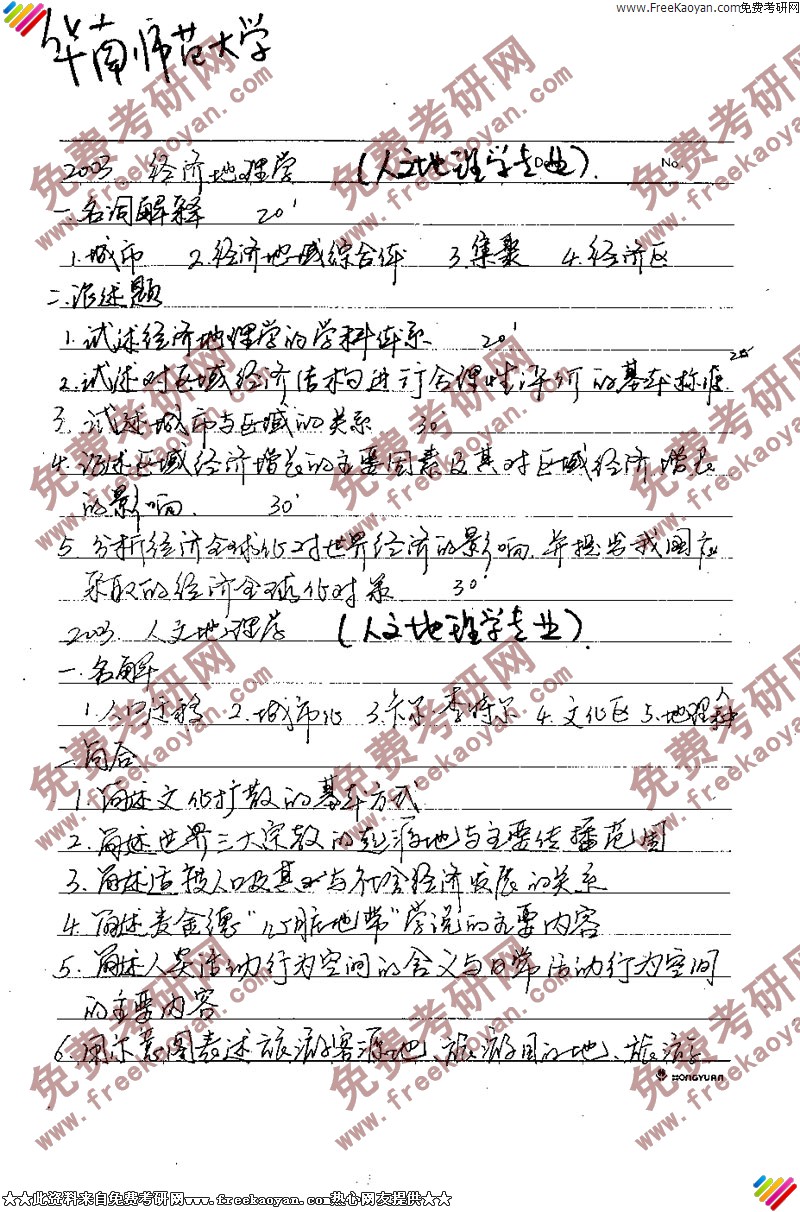 www.FreeKaoyan.com免费考研网
华南师范大学
2003. 经济地理学 (人文地理学专业).
No.
一.名词解释 20'
1.城市 2.经济地域综合体 3.集聚 4.经济区
二.论述题
1.试述经济地理学的学科体系 20'
2.试述对区域经济结构进行合理性评价的基本标准. 20
3.试述城市与区域的关系 30'
4.论述区域经济增长的主要因素及其对区域经济增长
的影响. 30'
5.分析经济全球化对世界经济的影响,并提出我国应
采取的经济全球化对策 30'
2003. 人文地理学 (人文地理学专业).
一.名解
1.人口迁移 2.城市化 3.卡尔·李特尔 4.文化区 5.地理
二.问合
1.简述文化扩散的基本方式
2.简述世界三大宗教的起源地与主要传播范围
3.简述适度人口及其与社会经济发展的关系
4.简述麦金德“心脏地带”学说的主要内容
5.简述人类活动行为空间的含义与日常活动行为空间
的主要内容
6.用示意图表述旅游客源地、旅游目的地、旅游
HONGYUAN
免费考研网
www.freekaoyan.com
★★此资料来自免费考研网www.freekaoyan.com热心网友提供★★